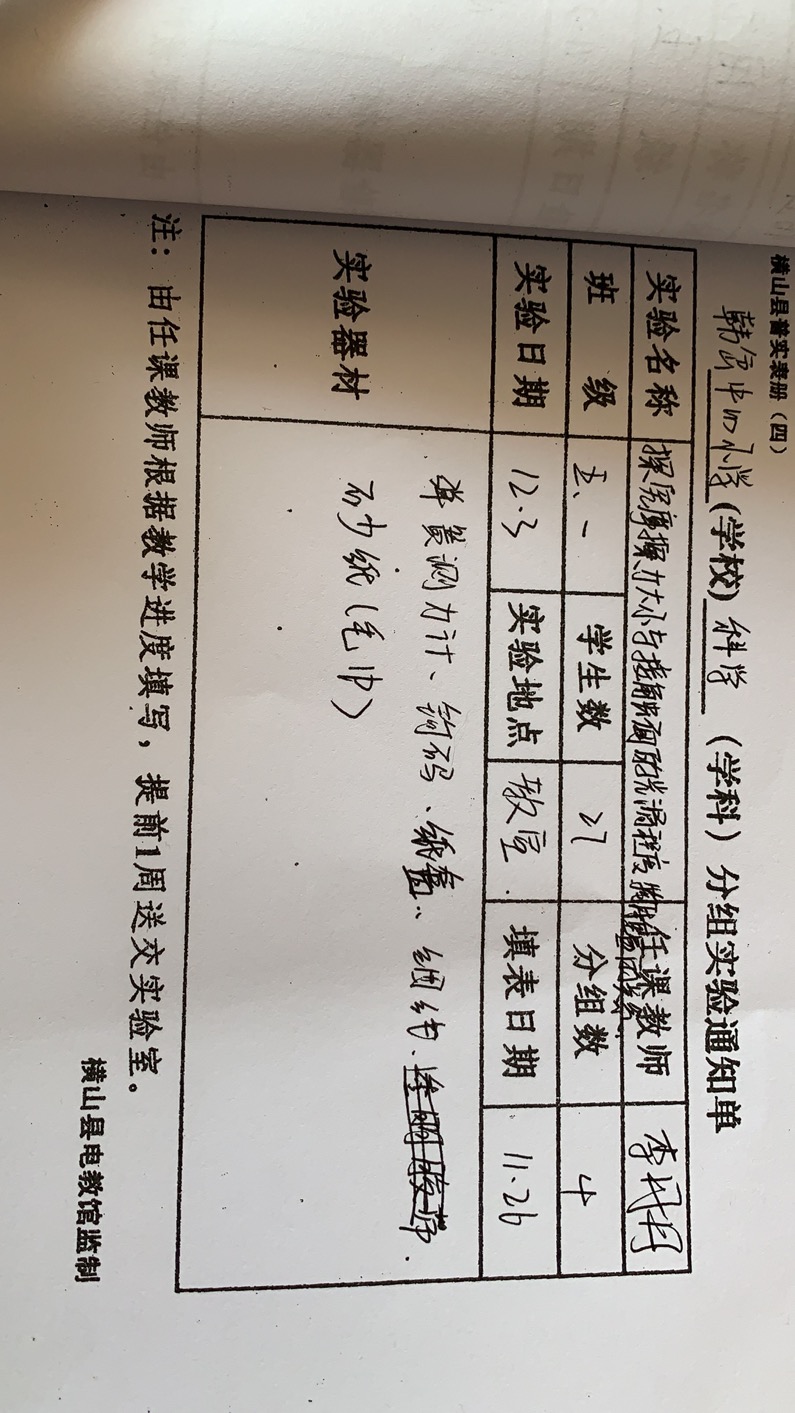 横山县普实表册（四）
中心小学(学校) 科学 （学科）分组实验通知单
实验名称 探究摩擦力大小与接触面的光滑程度 任课教师 李
班 级 五、一 学生数 27 分组数 4
实验日期 12.3 实验地点 教室. 填表日期 11.26
实验器材 弹簧测力计、钩码、纸盒、细绳、
砂纸(毛巾)
注：由任课教师根据教学进度填写，提前1周送交实验室。
横山县电教馆监制